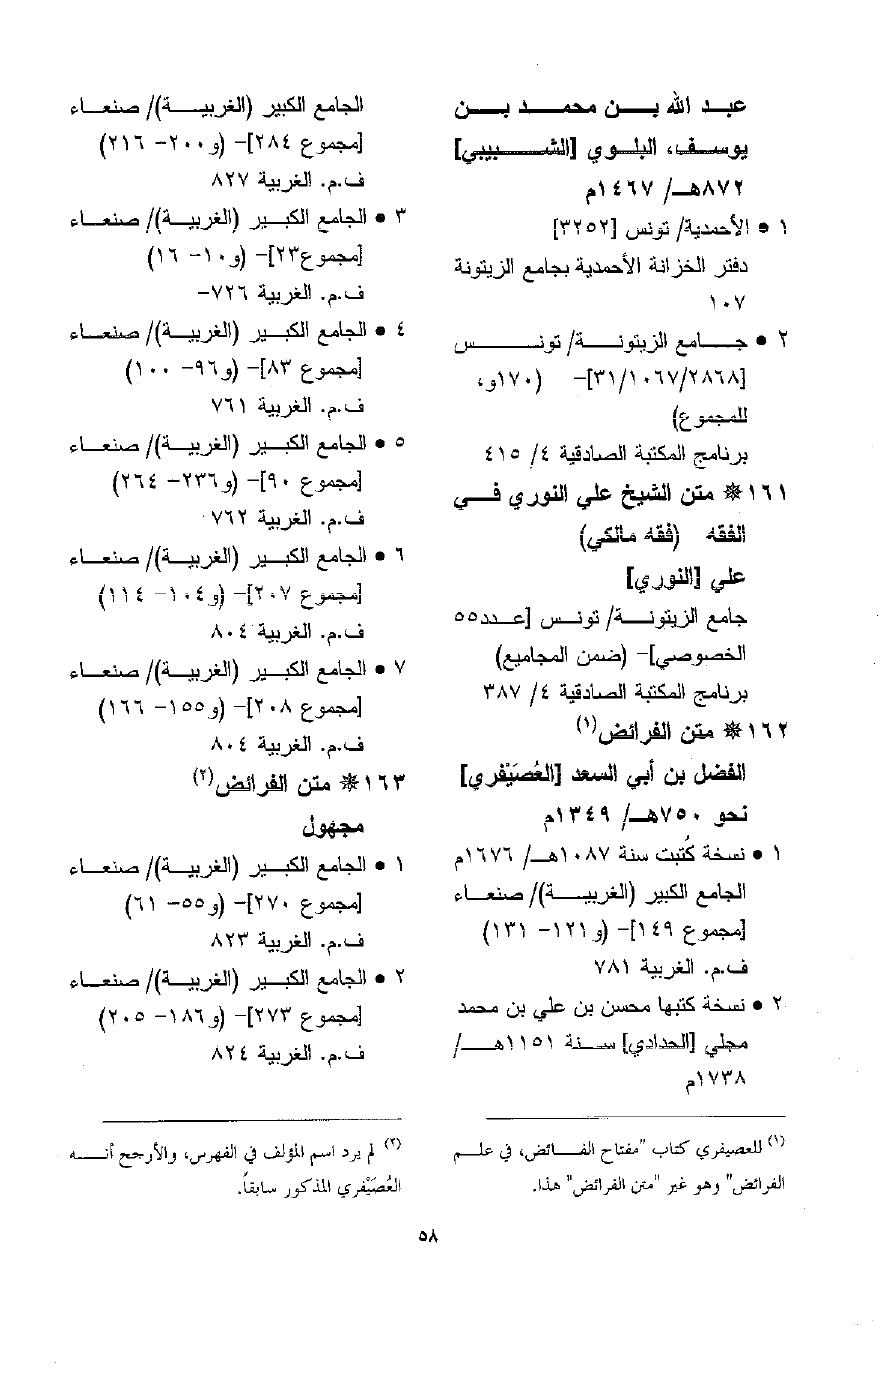 عبد الله بن محمد بن
يوسف، البلوي [الشبيبي]
٨٧٢هـ/ ١٤٦٧م
١ • الأحمدية/ تونس [٣٢٥٢]
دفتر الخزانة الأحمدية بجامع الزيتونة
١٠٧
٢ • جامع الزيتونة/ تونس
[٣١/١٠٦٧/٢٨٦٨]- (١٧٠و،
للمجموع)
برنامج المكتبة الصادقية ٤/ ٤١٥
١٦١ ❋ متن الشيخ علي النوري في
الفقه (فقه مالكي)
علي [النوري]
جامع الزيتونة/ تونس [عدد٥٥
الخصوصي]- (ضمن المجاميع)
برنامج المكتبة الصادقية ٤/ ٣٨٧
١٦٢ ❋ متن الفرائض(١)
الفضل بن أبي السعد [العُصَيْفري]
نحو ٧٥٠هـ/ ١٣٤٩م
١ • نسخة كُتبت سنة ١٠٨٧هـ/ ١٦٧٦م
الجامع الكبير (الغربية)/ صنعاء
[مجموع ١٤٩]- (و١٢١- ١٣١)
ف.م. الغربية ٧٨١
٢ • نسخة كتبها محسن بن علي بن محمد
مجلي [الحدادي] سنة ١١٥١هـ/
١٧٣٨م
(١) للعصيفري كتاب "مفتاح الفائض، في علم
الفرائض" وهو غير "متن الفرائض" هذا.
الجامع الكبير (الغربية)/ صنعاء
[مجموع ٢٨٤]- (و٢٠٠- ٢١٦)
ف.م. الغربية ٨٢٧
٣ • الجامع الكبير (الغربية)/ صنعاء
[مجموع٢٣]- (و١٠- ١٦)
ف.م. الغربية ٧٢٦-
٤ • الجامع الكبير (الغربية)/ صنعاء
[مجموع ٨٣]- (و٩٦- ١٠٠)
ف.م. الغربية ٧٦١
٥ • الجامع الكبير (الغربية)/ صنعاء
[مجموع ٩٠]- (و٢٣٦- ٢٦٤)
ف.م. الغربية ٧٦٢
٦ • الجامع الكبير (الغربية)/ صنعاء
[مجموع ٢٠٧]- (و١٠٤- ١١٤)
ف.م. الغربية ٨٠٤
٧ • الجامع الكبير (الغربية)/ صنعاء
[مجموع ٢٠٨]- (و١٥٥- ١٦٦)
ف.م. الغربية ٨٠٤
١٦٣ ❋ متن الفرائض(٢)
مجهول
١ • الجامع الكبير (الغربية)/ صنعاء
[مجموع ٢٧٠]- (و٥٥- ٦١)
ف.م. الغربية ٨٢٣
٢ • الجامع الكبير (الغربية)/ صنعاء
[مجموع ٢٧٣]- (و١٨٦- ٢٠٥)
ف.م. الغربية ٨٢٤
(٢) لم يرد اسم المؤلف في الفهرس، والأرجح أنه
العُصَيْفري المذكور سابقاً.
٥٨